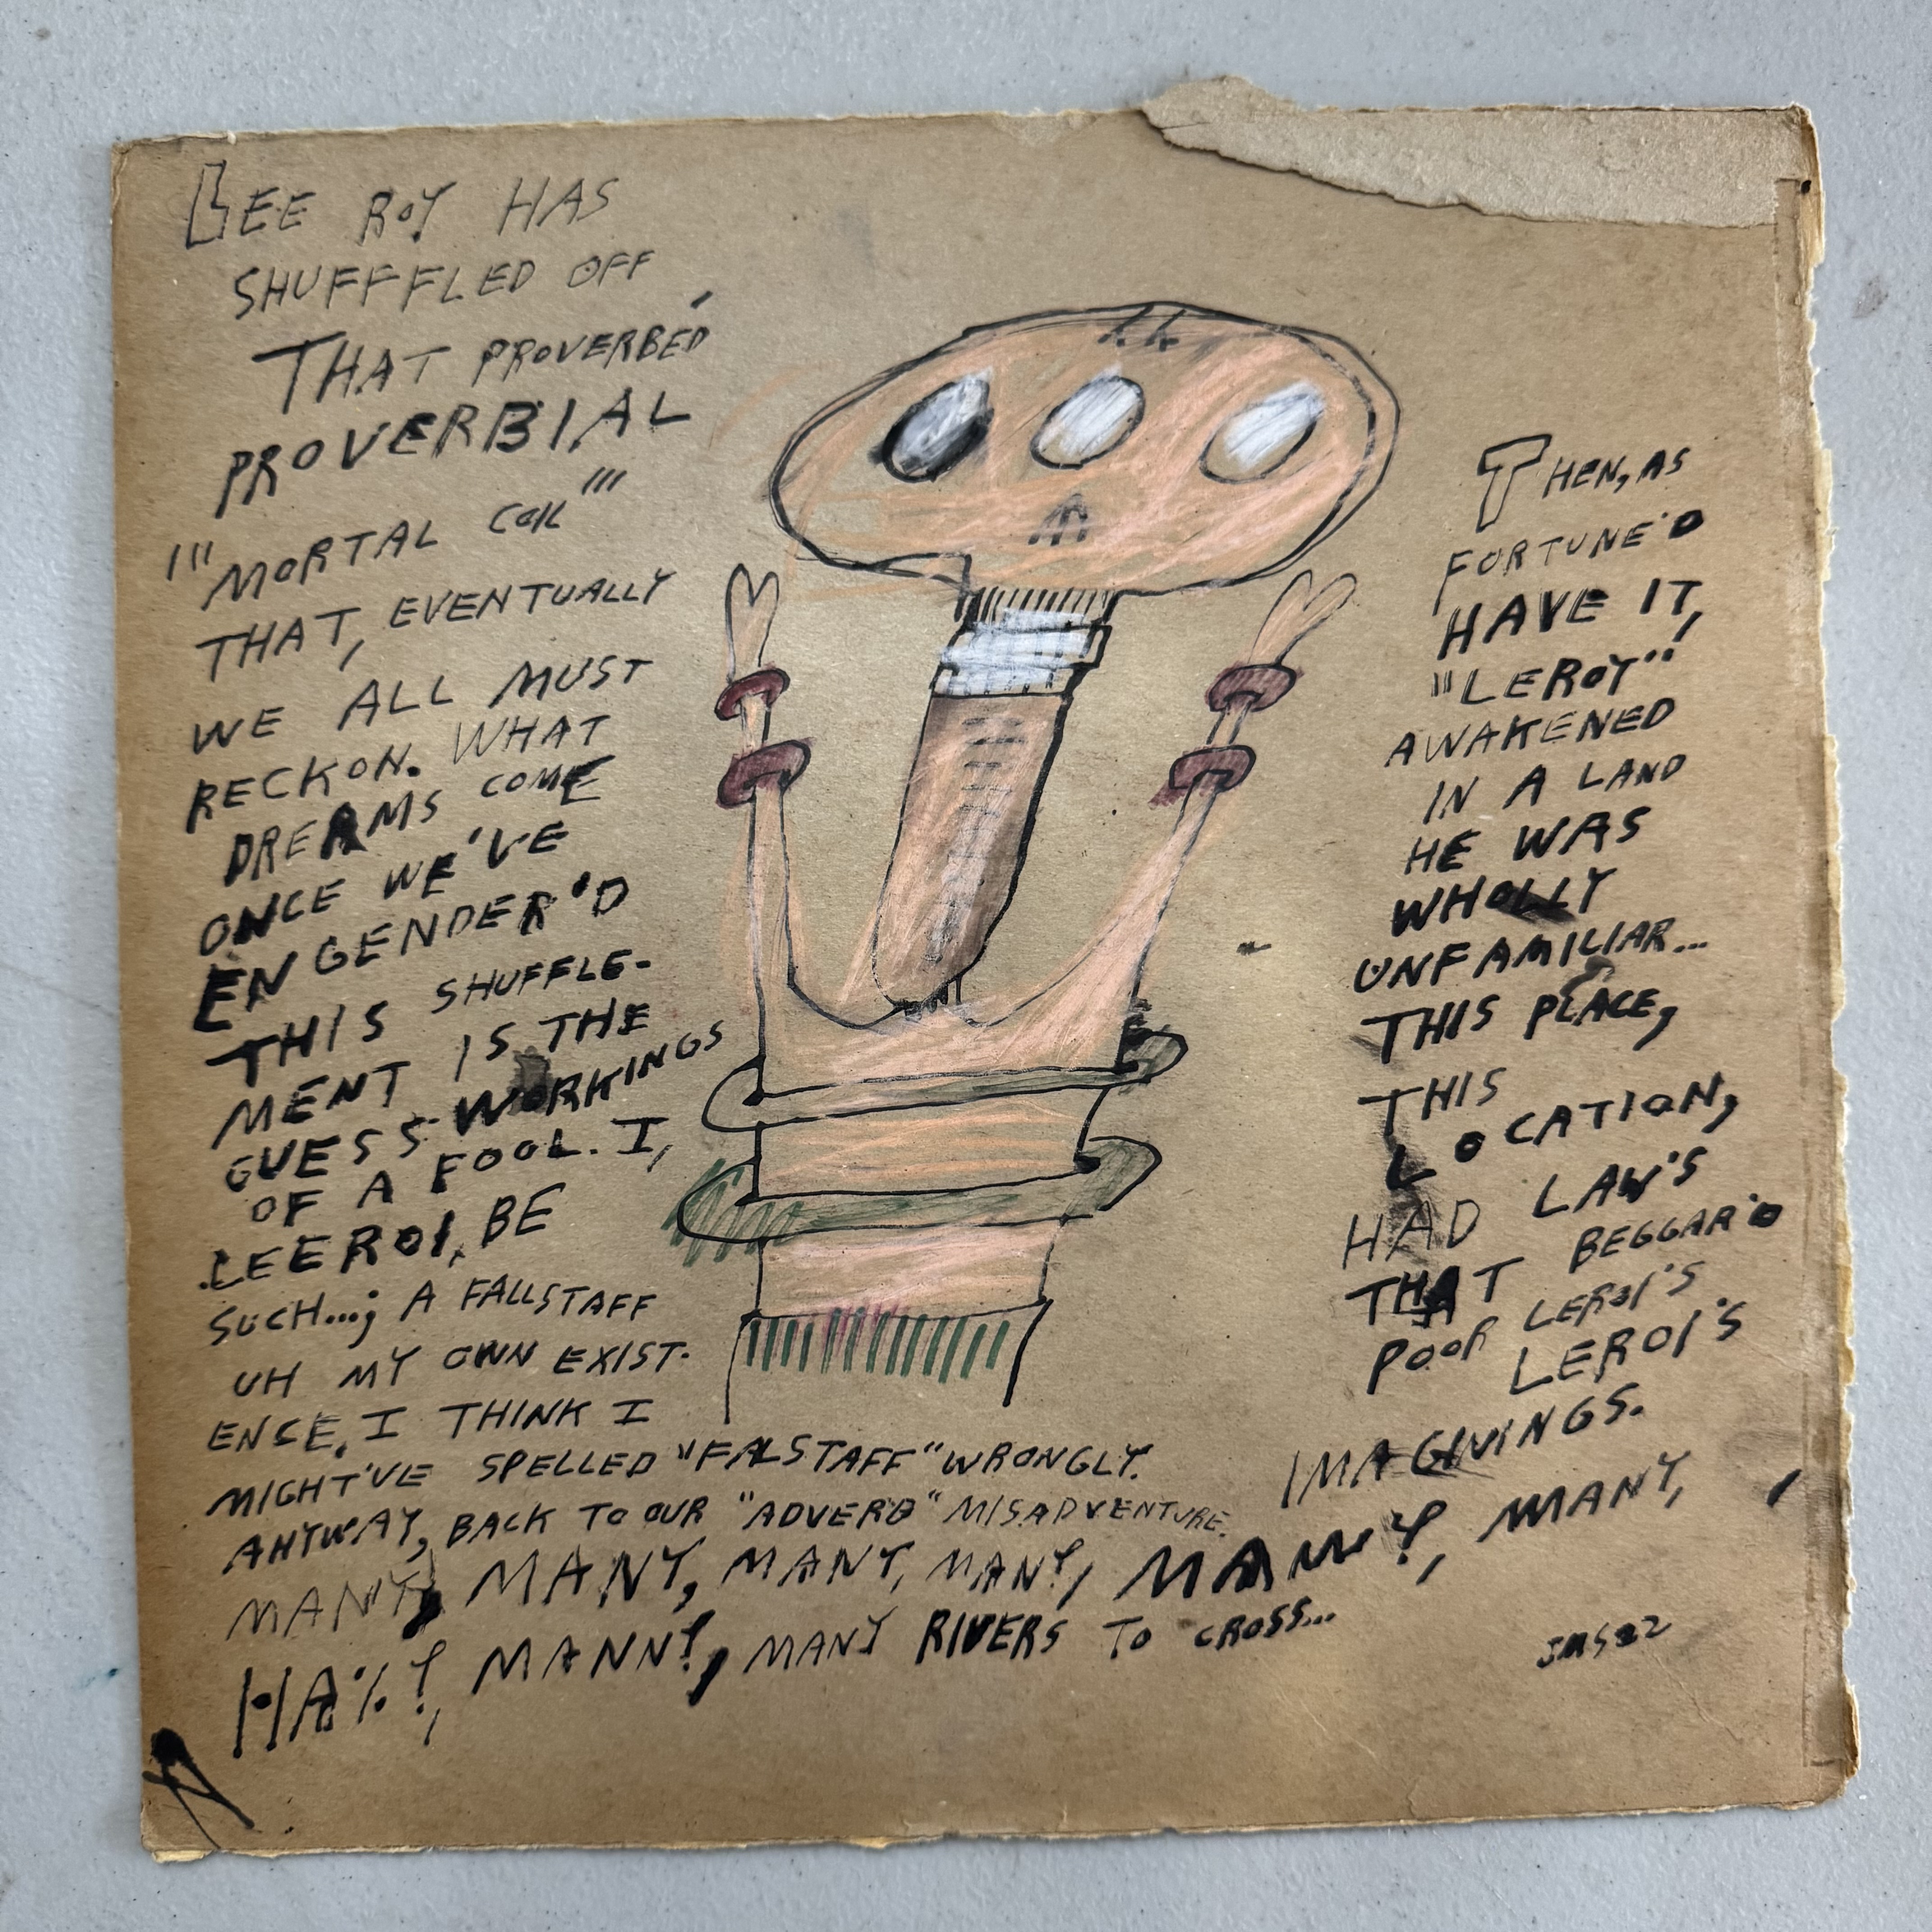 LEE ROY HAS
SHUFFFLED OFF
THAT PROVERBÉD
PROVERBIAL
"'MORTAL COIL"'
THAT, EVENTUALLY
WE ALL MUST
RECKON. WHAT
DREAMS COME
ONCE WE'VE
ENGENDER'D
THIS SHUFFLE-
MENT IS THE
GUESS-WORKINGS
OF A FOOL. I,
LEEROI, BE
SUCH...; A FALLSTAFF
UH MY OWN EXIST-
ENCE. I THINK I
MIGHT'VE SPELLED "FALSTAFF" WRONGLY.
ANYWAY, BACK TO OUR "ADVERB" MISADVENTURE.
MANY, MANY, MANY, MANY, MANY, MANY,
MANY, MANY, RIVERS TO CROSS...
THEN, AS
FORTUNE'D
HAVE IT,
"LEROY"
AWAKENED
IN A LAND
HE WAS
WHOLLY
UNFAMILIAR...
THIS PLACE,
THIS
LOCATION,
HAD LAW'S
THAT BEGGAR'D
POOR LEROI'S
LEROI'S
IMAGININGS.